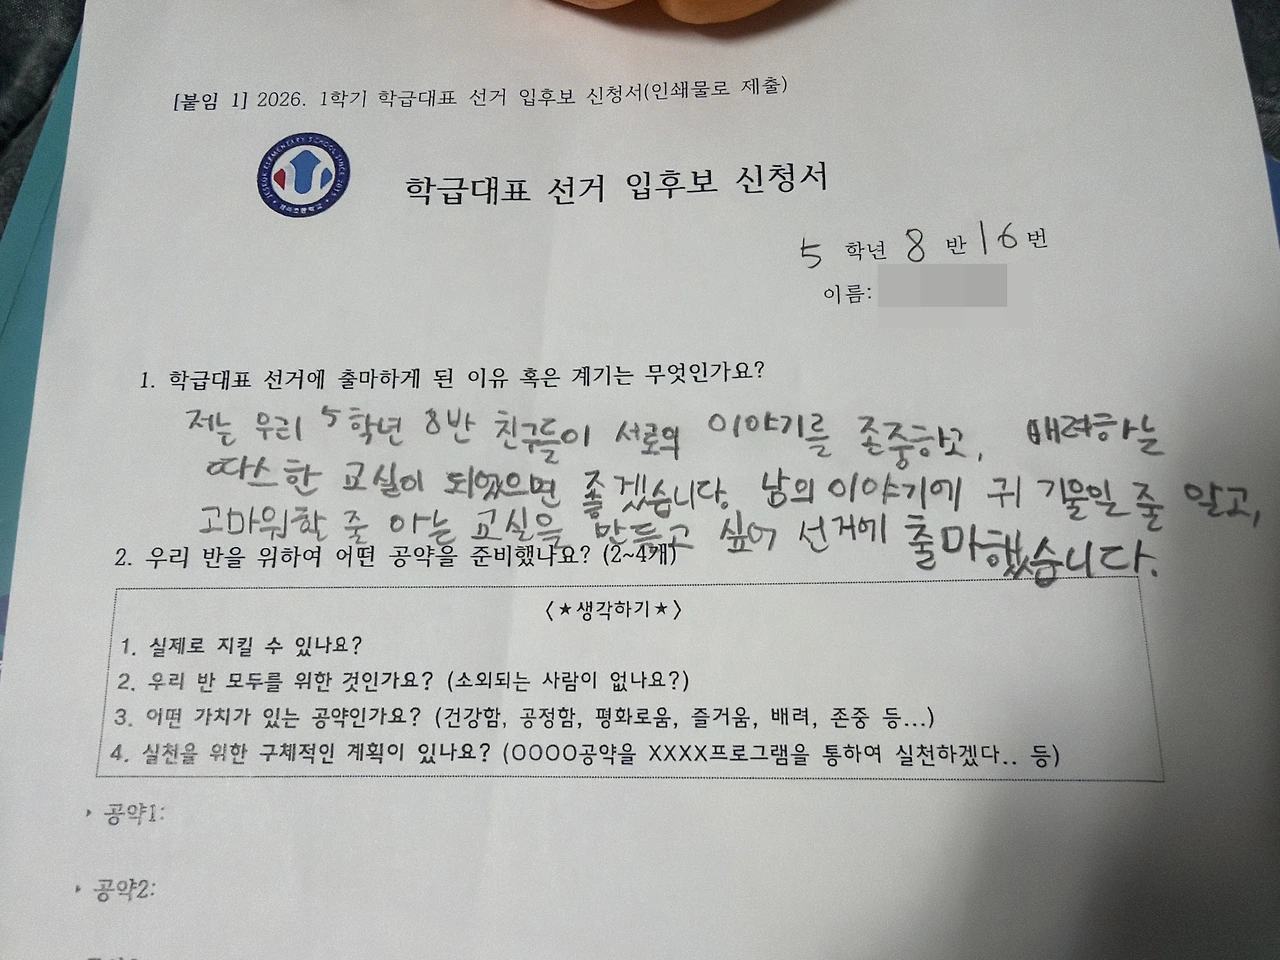 [붙임 1] 2026. 1학기 학급대표 선거 입후보 신청서(인쇄물로 제출)
학급대표 선거 입후보 신청서
5 학년 8 반 16 번
이름:
1. 학급대표 선거에 출마하게 된 이유 혹은 계기는 무엇인가요?
저는 우리 5학년 8반 친구들이 서로의 이야기를 존중하고, 배려하는
따스한 교실이 되었으면 좋겠습니다. 남의 이야기에 귀 기울일 줄 알고,
고마워할 줄 아는 교실을 만들고 싶어 선거에 출마했습니다.
2. 우리 반을 위하여 어떤 공약을 준비했나요? (2~4개)
〈★생각하기★〉
1. 실제로 지킬 수 있나요?
2. 우리 반 모두를 위한 것인가요? (소외되는 사람이 없나요?)
3. 어떤 가치가 있는 공약인가요? (건강함, 공정함, 평화로움, 즐거움, 배려, 존중 등...)
4. 실천을 위한 구체적인 계획이 있나요? (OOOO공약을 XXXX프로그램을 통하여 실천하겠다.. 등)
‣ 공약1:
‣ 공약2: